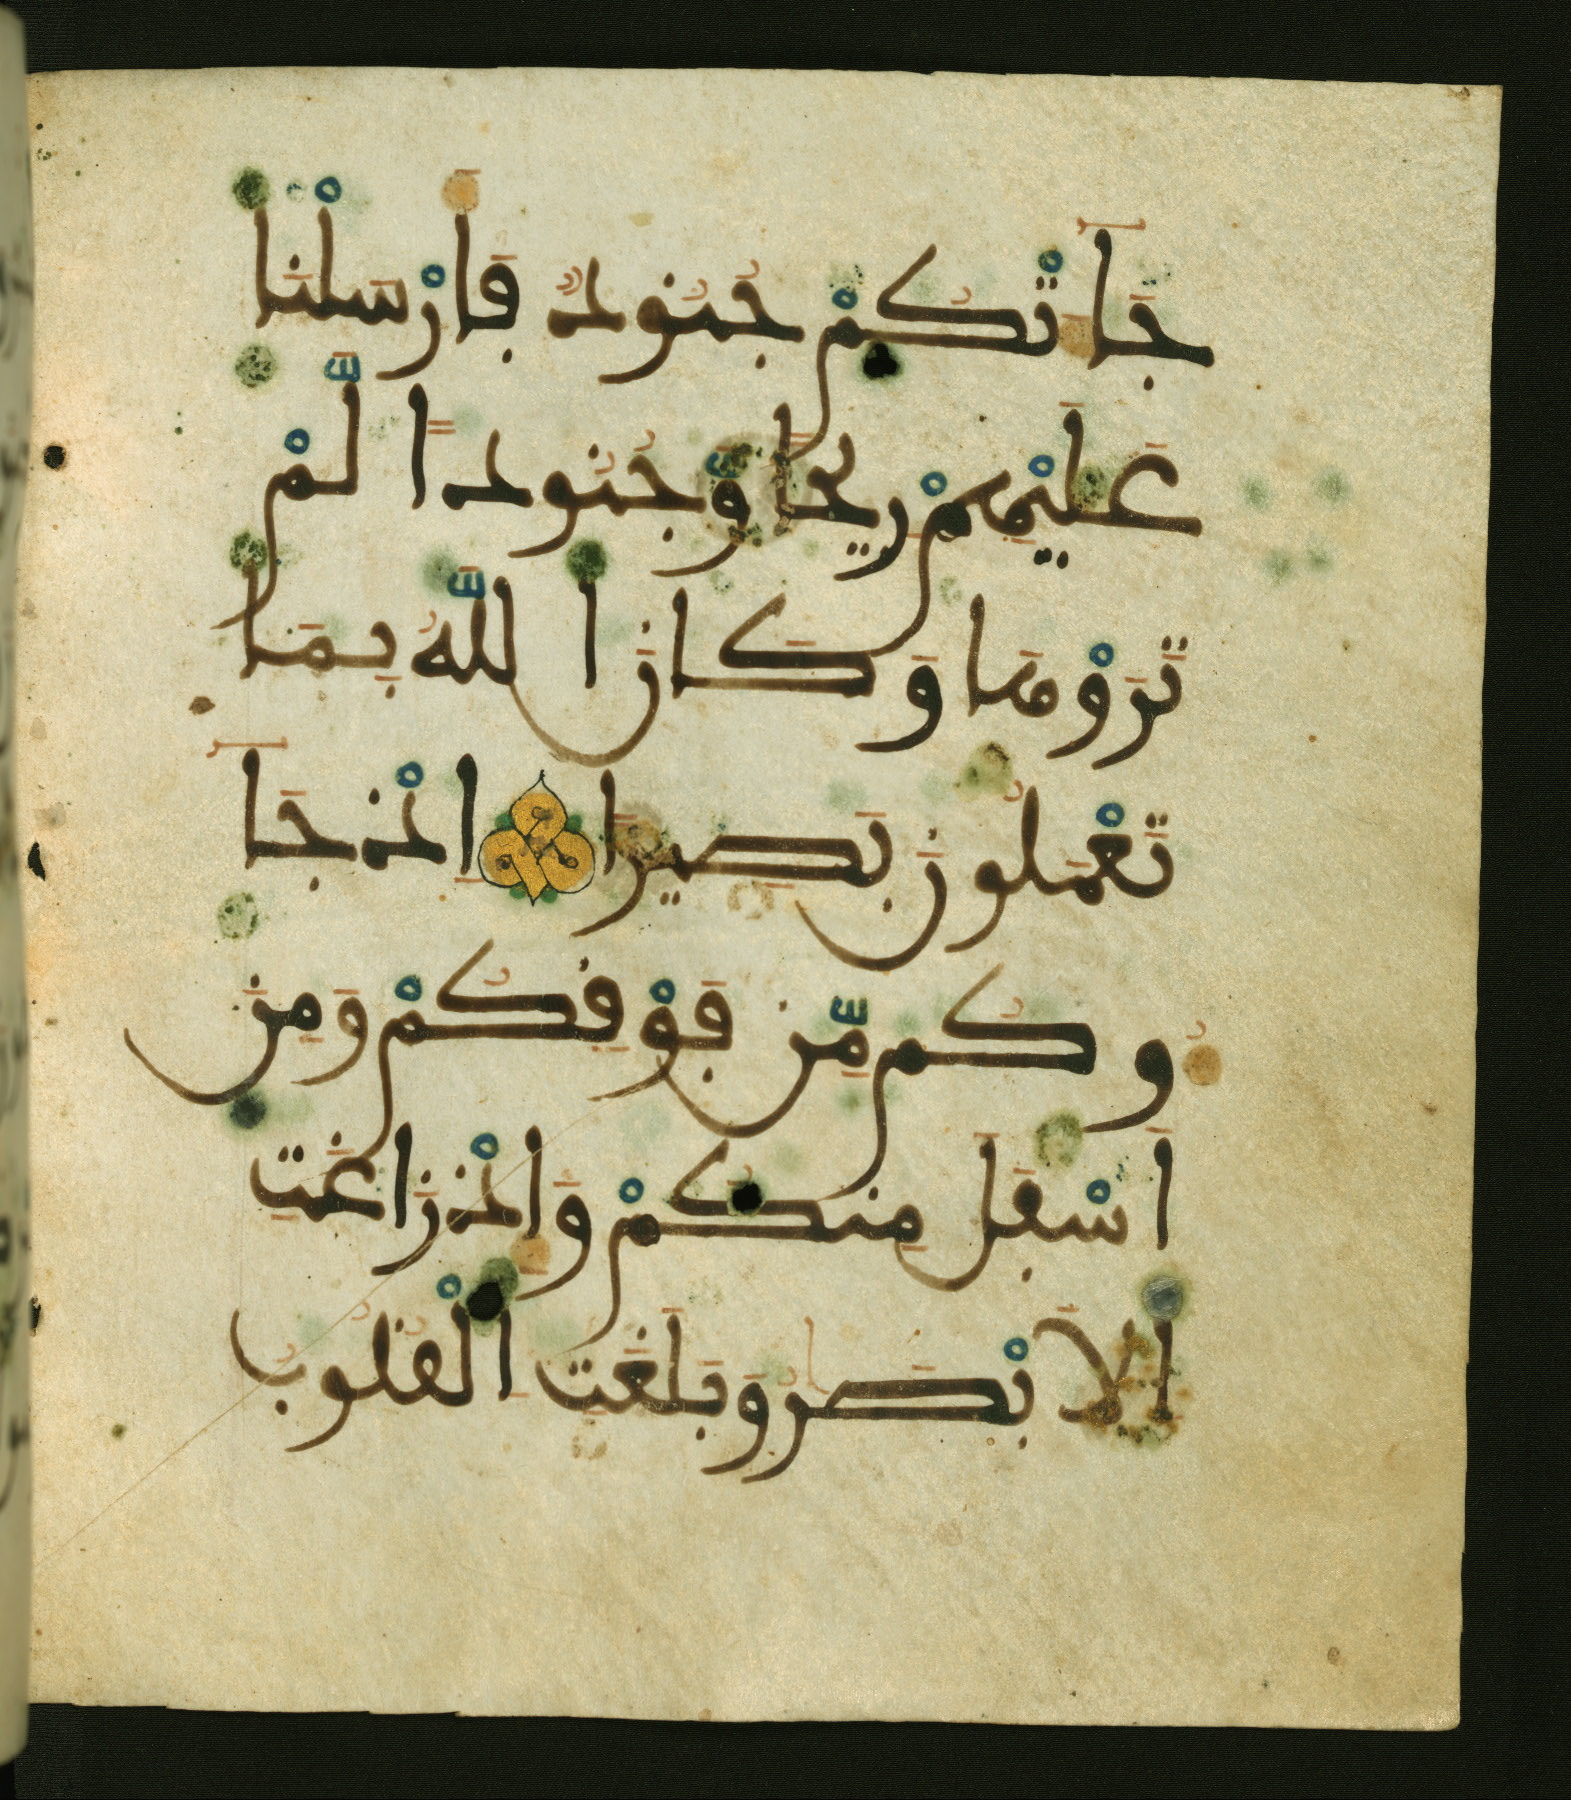 جَآتْكُمْ جُنُودٌ فَأَرْسَلْنَا
عَلَيْهِمْ رِيحًا وَّجُنُودًا لَّمْ
تَرَوْهَا وَكَانَ اَللَّهُ بِمَا
تَعْمَلُونَ بَصِيرًا إِذْ جَآ
ءُوكُم مِّن فَوْقِكُمْ وَمِنَ
اَسْفَلَ مِنكُمْ وَإِذْ زَاغَتِ
اَلَابْصَٰرُ وَبَلَغَتِ اِلْقُلُوبُ